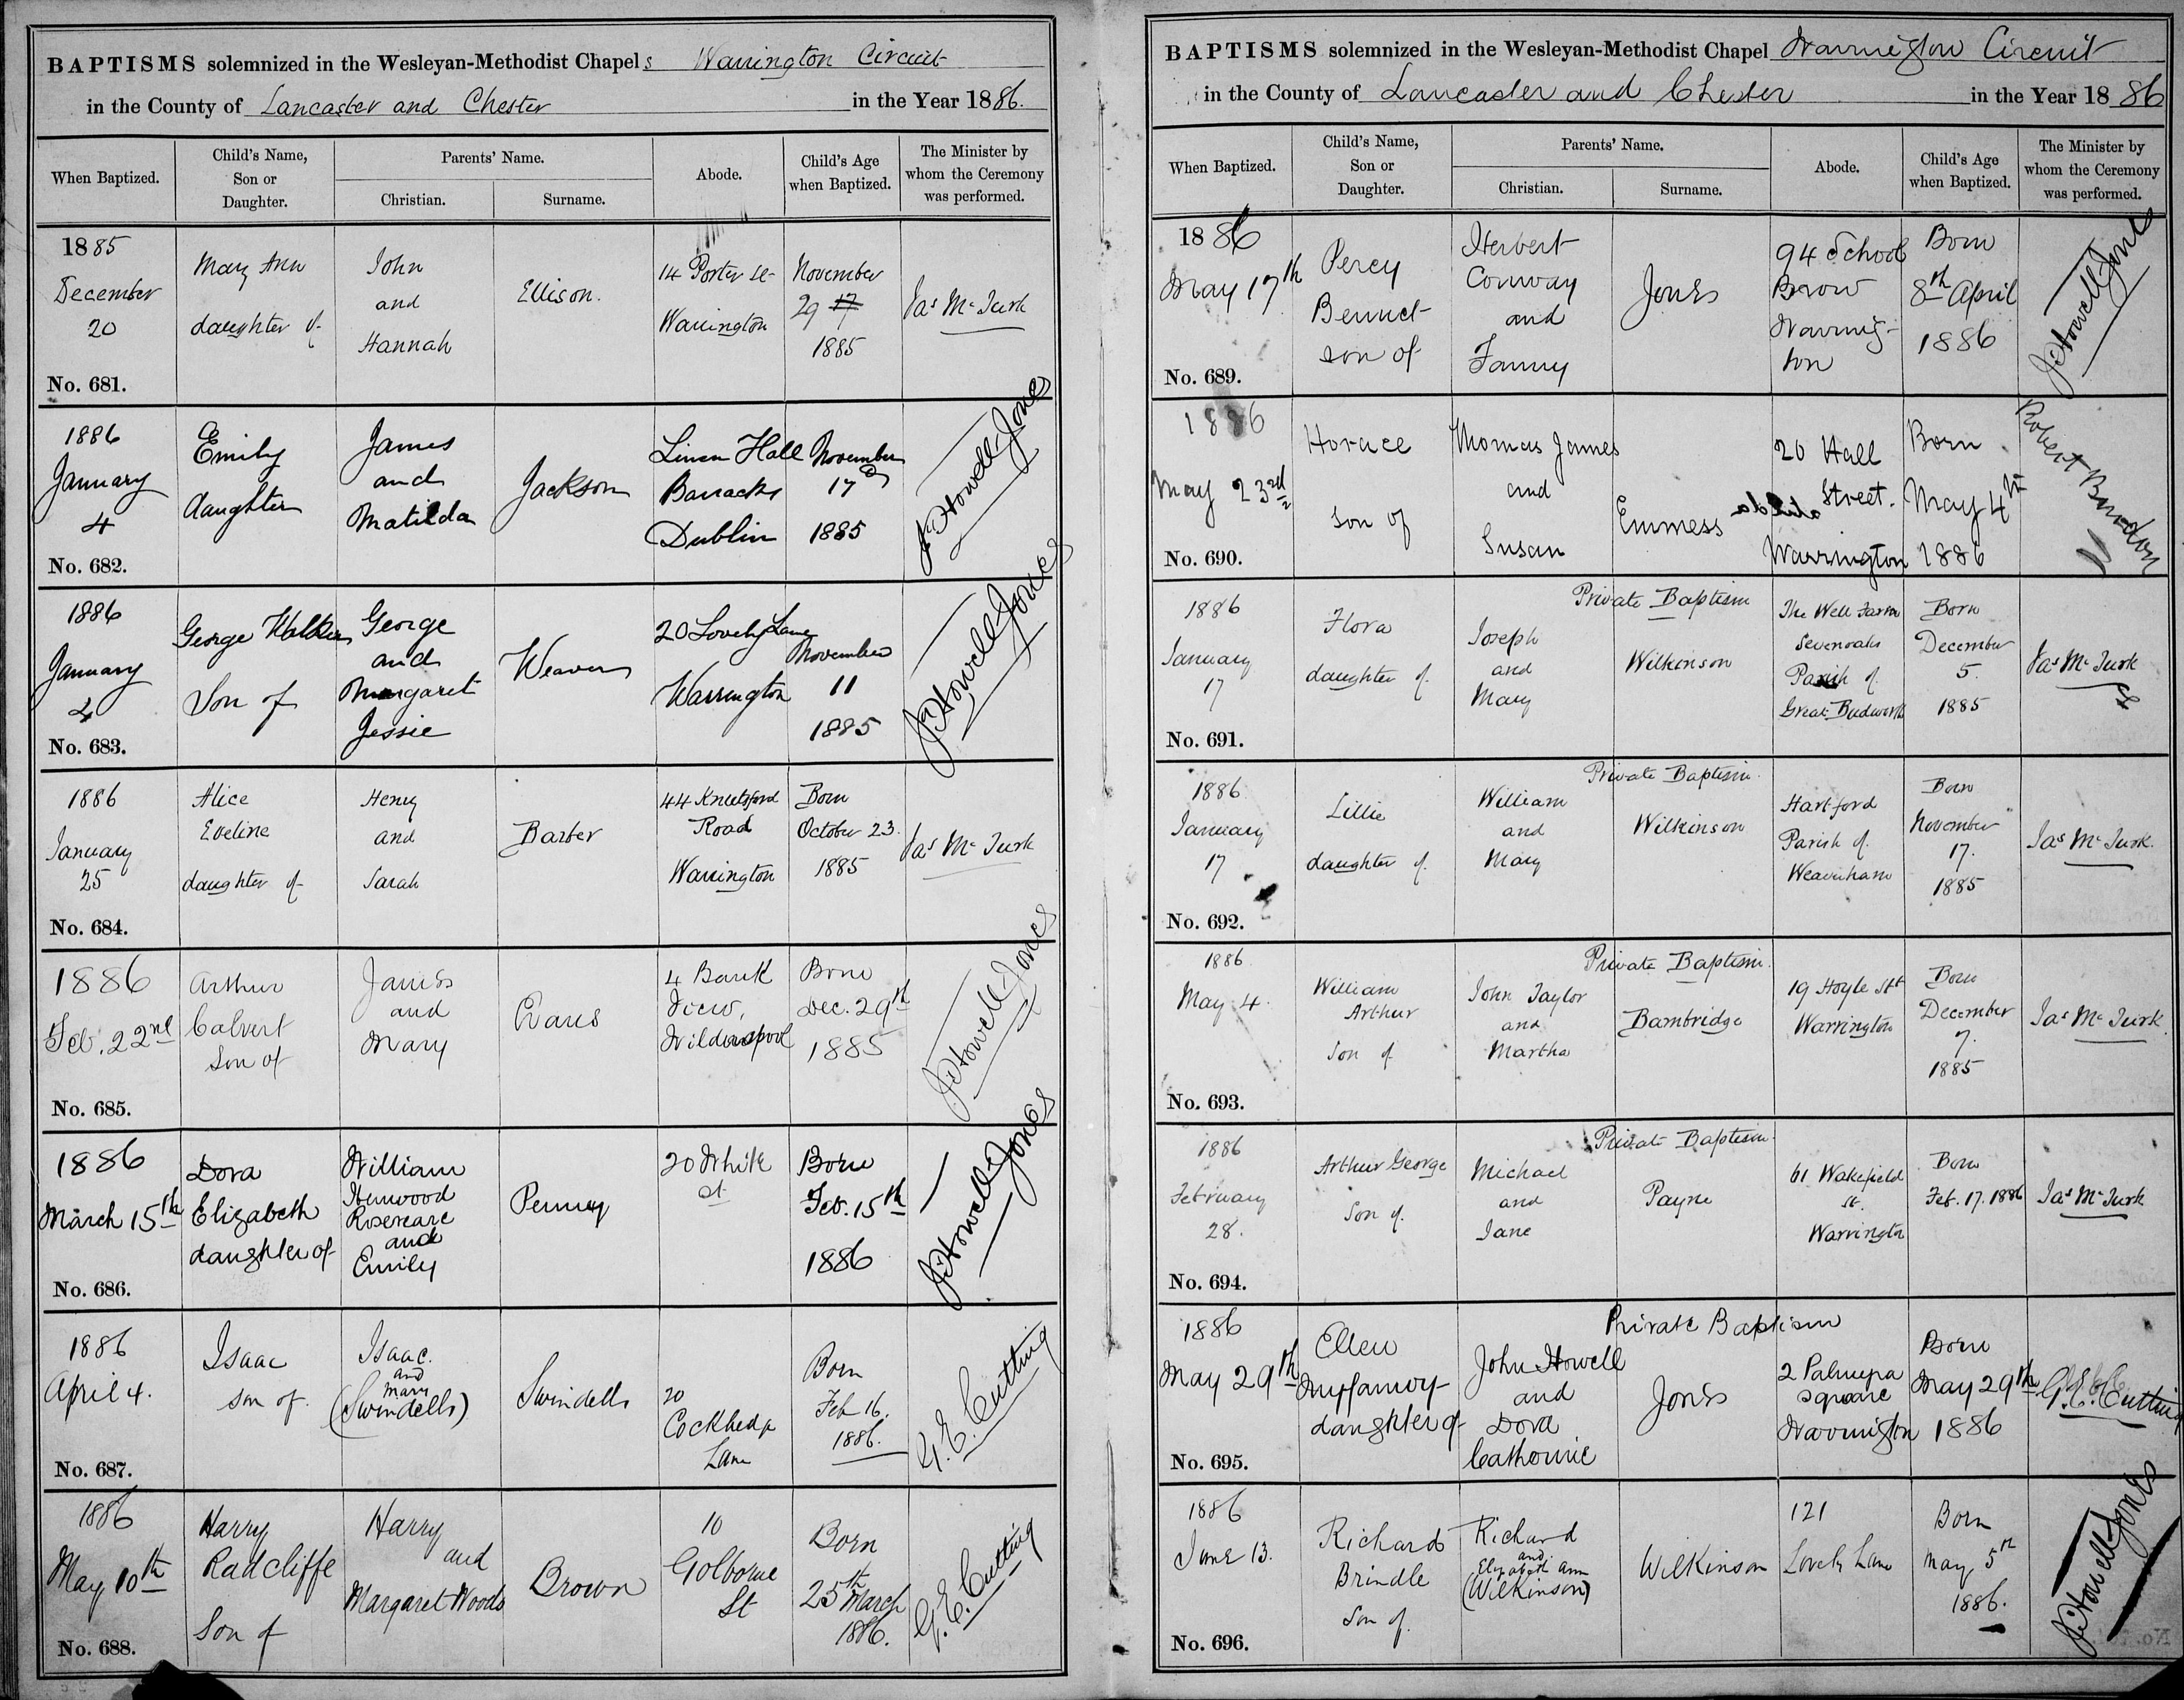 BAPTISMS solemnized in the Wesleyan-Methodist Chapels Warrington Circuit
in the County of Lancaster and Chester in the Year 1886.
When Baptized. Child's Name, Son or Daughter. Parents' Name. Christian. Surname. Abode. Child's Age when Baptized. The Minister by whom the Ceremony was performed.
1885
December
20
No. 681.
Mary Ann
daughter of
John
and
Hannah
Ellison.
14 Porter St
Warrington
November
29 17
1885
Jas McTurk
1886
January
4
No. 682.
Emily
daughter
James
and
Matilda
Jackson
Linen Hall
Barracks
Dublin
November
17
1885
J. Howell Jones
1886
January
4
No. 683.
George Walker
Son of
George
and
Margaret
Jessie
Weaver
20 Lovely Lane
Warrington
November
11
1885
J. Howell Jones
1886
January
25
No. 684.
Alice
Eveline
daughter of
Henry
and
Sarah
Barber
44 Knutsford
Road
Warrington
Born
October 23.
1885
Jas McTurk
1886
Feb. 22nd
No. 685.
Arthur
Calvert
Son of
James
and
Mary
Evans
4 Bank
View,
Wilderspool
Born
Dec. 29th
1885
J. Howell Jones
1886
March 15th
No. 686.
Dora
Elizabeth
daughter of
William
Henwood
Roseveare
and
Emily
Penney
20 White
St
Born
Feb. 15th
1886
J. Howell Jones
1886
April 4.
No. 687.
Isaac
son of
Isaac.
and
Mary
(Swindells)
Swindells
20
Cockhedge
Lane
Born
Feb 16.
1886.
G. E. Cutting
1886
May 10th
No. 688.
Harry
Radcliffe
Son of
Harry
and
Margaret Woods
Brown
10
Golborne
St
Born
25th March
1886.
G. E. Cutting
BAPTISMS solemnized in the Wesleyan-Methodist Chapel Warrington Circuit
in the County of Lancaster and Chester in the Year 1886
When Baptized. Child's Name, Son or Daughter. Parents' Name. Christian. Surname. Abode. Child's Age when Baptized. The Minister by whom the Ceremony was performed.
1886
May 17th
No. 689.
Percy
Bennet
son of
Herbert
Conway
and
Fanny
Jones
94 School
Brow
Warring-
ton
Born
8th April
1886
J. Howell Jones
1886
May 23rd
No. 690.
Horace
Son of
Thomas James
and
Susan
Emmess
20 Hall
Street.
Warrington
Born
May 4th
1886
Robert Brindon
1886
January
17
No. 691.
Flora
daughter of
Private Baptism
Joseph
and
Mary
Wilkinson
The Well Farm
Sevenoaks
Parish of
Great Budworth
Born
December
5.
1885
Jas McTurk
1886
January
17
No. 692.
Lillie
daughter of
Private Baptism.
William
and
Mary
Wilkinson
Hartford
Parish of
Weaverham
Born
November
17.
1885
Jas McTurk.
1886
May 4.
No. 693.
William
Arthur
Son of
Private Baptism.
John Taylor
and
Martha
Bambridge
19 Hoyle St
Warrington
Born
December
7.
1885
Jas McTurk.
1886
February
28.
No. 694.
Arthur George
Son of.
Private Baptism.
Michael
and
Jane
Payne
61 Wakefield
St.
Warrington
Born
Feb. 17. 1886
Jas McTurk
1886
May 29th
No. 695.
Ellen
daughter of
Private Baptism
John Howell
and
Dora
Catherine
Jones
2 Palmyra
Square
Warrington
Born
May 29th
1886
G. E. Cutting
1886
June 13.
No. 696.
Richard
Brindle
Son of.
Richard
and
Elizabeth Ann
(Wilkinson)
Wilkinson
121
Lovely Lane
Born
May 5th
1886.
J. Howell Jones